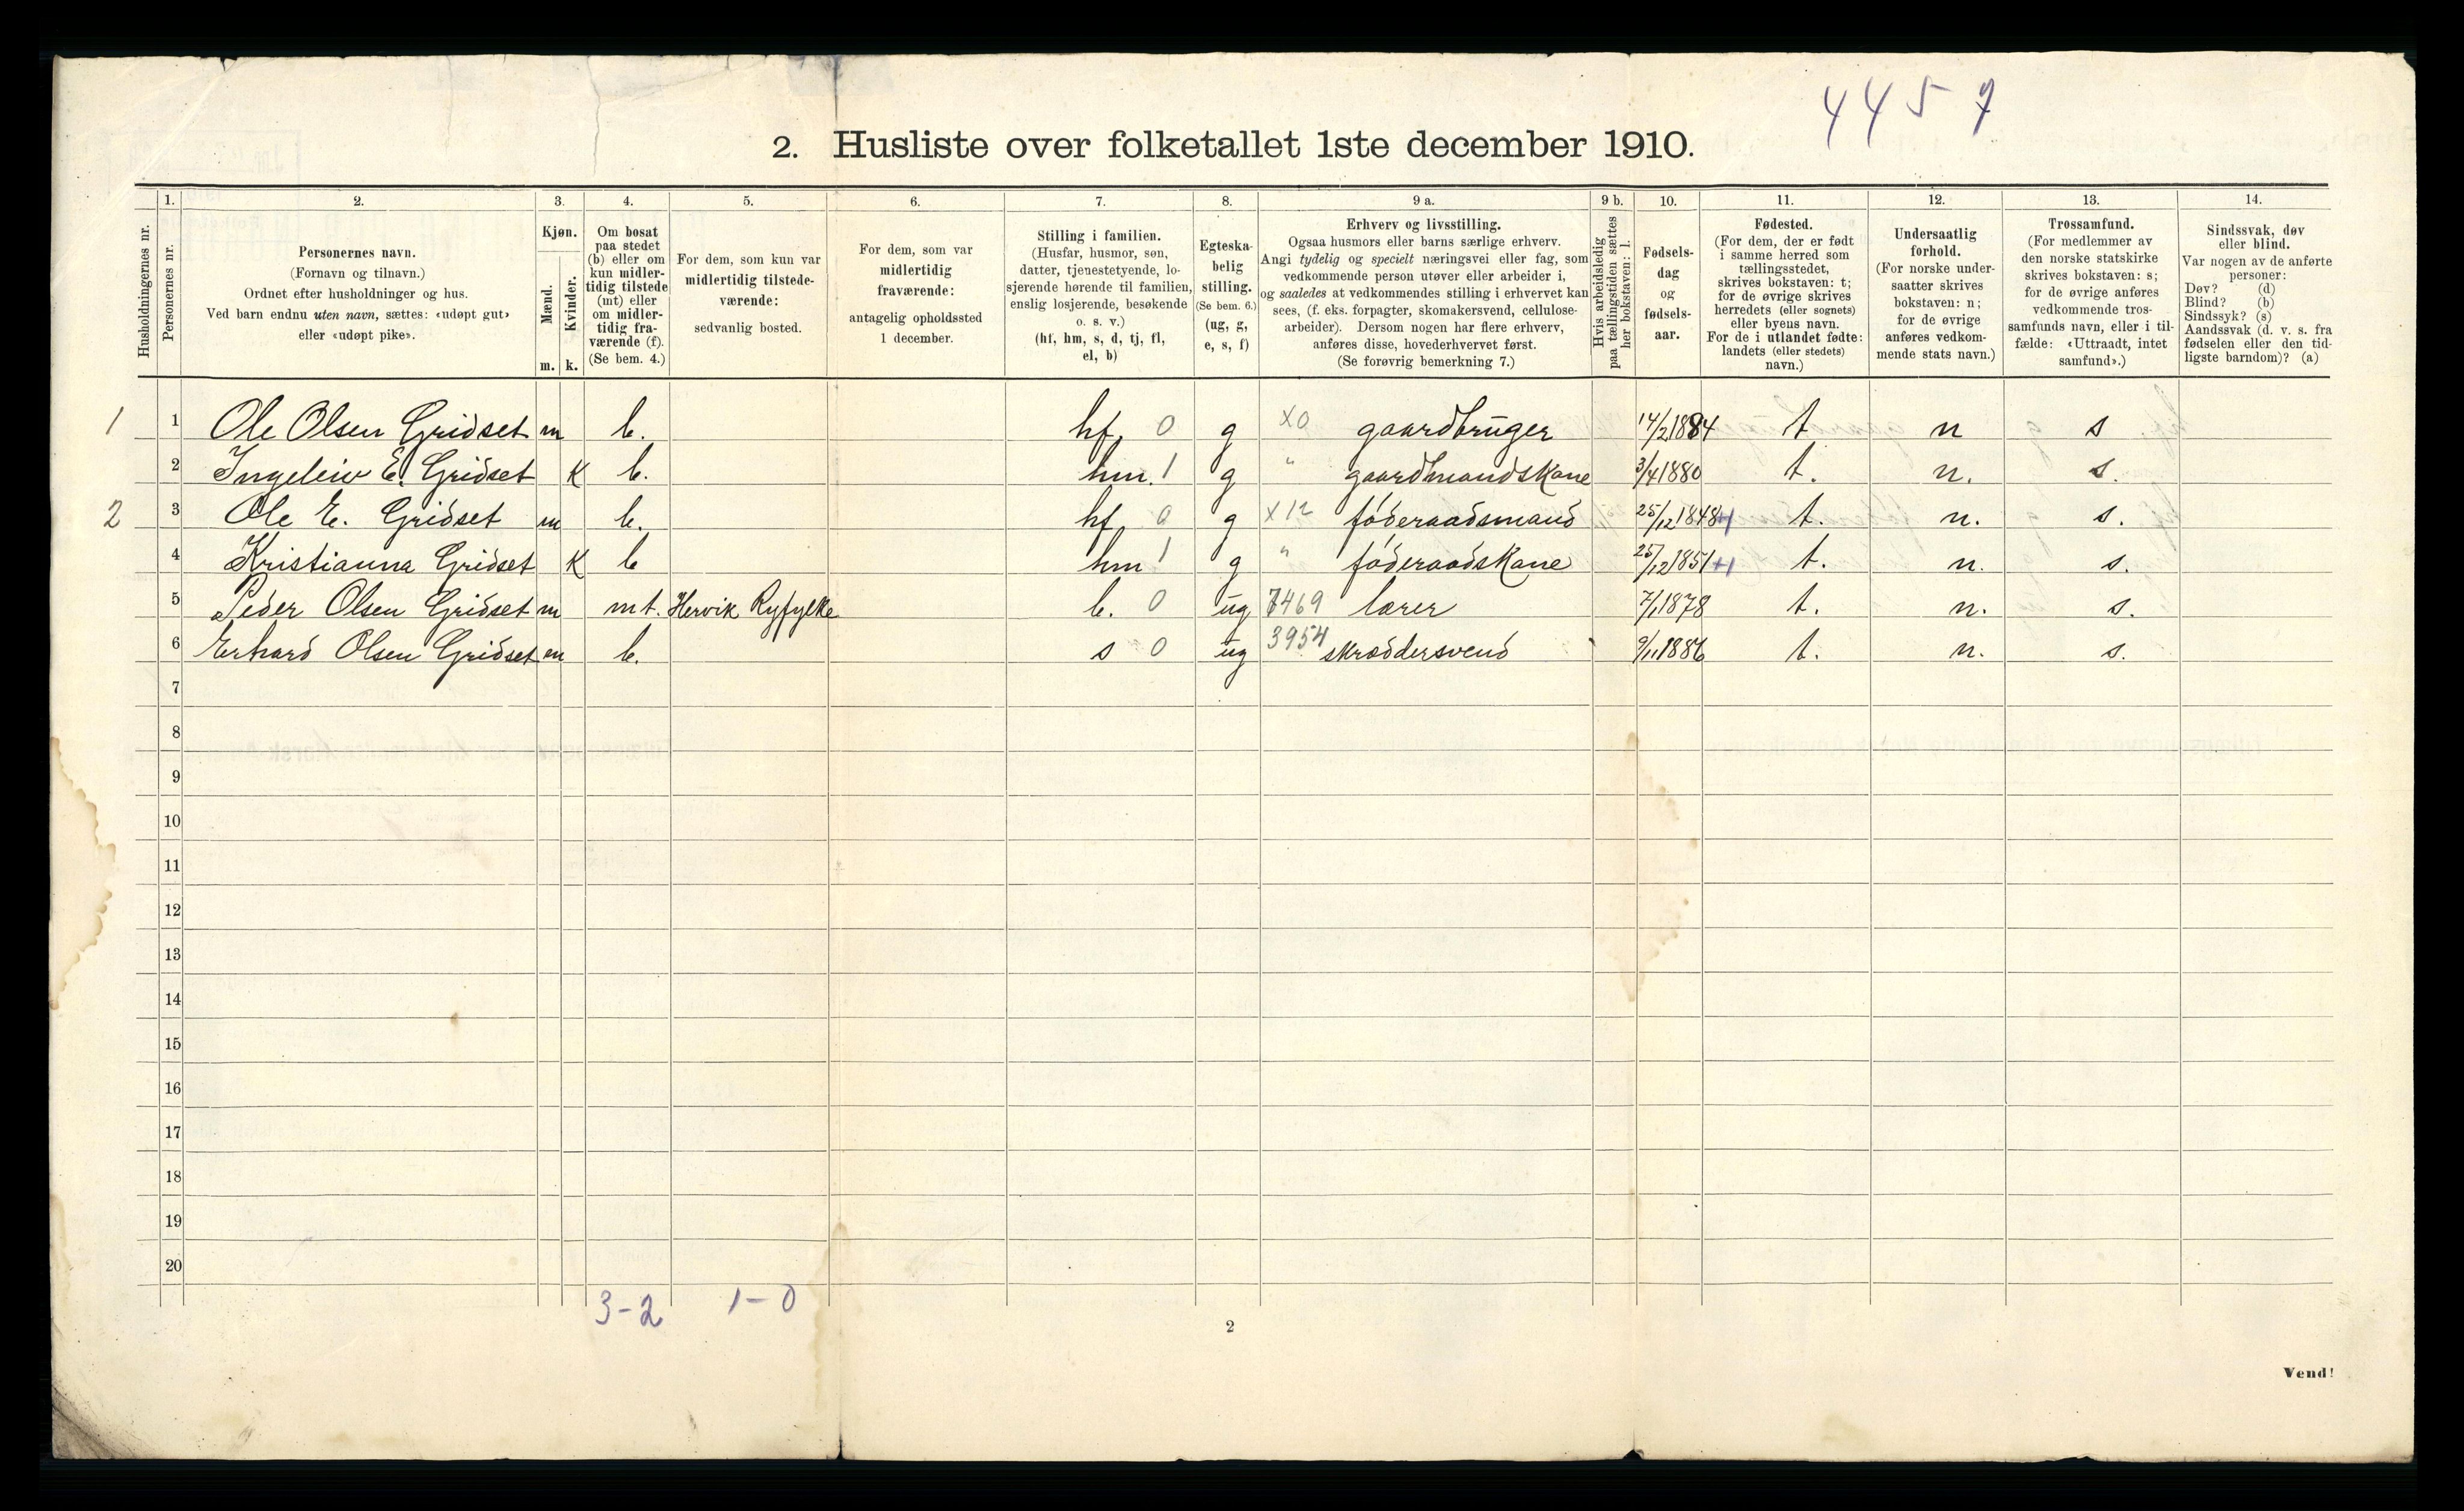 4457
2. Husliste over folketallet 1ste december 1910.
Husholdningernes nr.
1. Personernes nr.
2. Personernes navn. (Fornavn og tilnavn.) Ordnet efter husholdninger og hus. Ved barn endnu uten navn, sættes: «udøpt gut» eller «udøpt pike».
3. Kjøn. Mænd. m. Kvinder. k.
4. Om bosat paa stedet (b) eller om kun midlertidig tilstede (mt) eller om midlertidig fraværende (f). (Se bem. 4.)
5. For dem, som kun var midlertidig tilstedeværende: sedvanlig bosted.
6. For dem, som var midlertidig fraværende: antagelig opholdssted 1 december.
7. Stilling i familien. (Husfar, husmor, søn, datter, tjenestetyende, losjerende hørende til familien, enslig losjerende, besøkende o. s. v.) (hf, hm, s, d, tj, fl, el, b)
8. Egteskabelig stilling. (Se bem. 6.) (ug, g, e, s, f)
9 a. Erhverv og livsstilling. Ogsaa husmors eller barns særlige erhverv. Angi tydelig og specielt næringsvei eller fag, som vedkommende person utøver eller arbeider i, og saaledes at vedkommendes stilling i erhvervet kan sees, (f. eks. forpagter, skomakersvend, cellulosearbeider). Dersom nogen har flere erhverv, anføres disse, hovederhvervet først. (Se forøvrig bemerkning 7.)
9 b. Hvis arbeidsledig paa tællingstiden sættes her bokstaven: l.
10. Fødselsdag og fødselsaar.
11. Fødested. (For dem, der er født i samme herred som tællingsstedet, skrives bokstaven: t; for de øvrige skrives herredets (eller sognets) eller byens navn. For de i utlandet fødte: landets (eller stedets) navn.)
12. Undersaatlig forhold. (For norske undersaatter skrives bokstaven: n; for de øvrige anføres vedkommende stats navn.)
13. Trossamfund. (For medlemmer av den norske statskirke skrives bokstaven: s; for de øvrige anføres vedkommende trossamfunds navn, eller i tilfælde: «Uttraadt, intet samfund».)
14. Sindssvak, døv eller blind. Var nogen av de anførte personer: Døv? (d) Blind? (b) Sindssyk? (s) Aandssvak (d. v. s. fra fødselen eller den tidligste barndom)? (a)
1 1 Ole Olsen Gridset m b. hf. 0 g X0 gaardbruger 14/2 1884 t n s
2 Ingeleiv E. Gridset K b. hm. 1 g " gaardmandskone 3/4 1880 t. n. s.
2 3 Ole E. Gridset m b. hf. 0 g X12 føderaadsmand 25/12 1848 +1 t. n. s.
4 Kristianna Gridset K b hm 1 g " føderaadskone 25/12 1851 +1 t. n. s.
5 Peder Olsen Gridset m mt. Hervik Ryfylke b. 0 ug 7469 lærer 7/1 1878 t. n. s.
6 Erhard Olsen Gridset m b. s 0 ug 3954 skræddersvend 9/11 1886 t. n. s.
7
8
9
10
11
12
13
14
15
16
17
18
19
20
3-2 1-0
2
Vend!